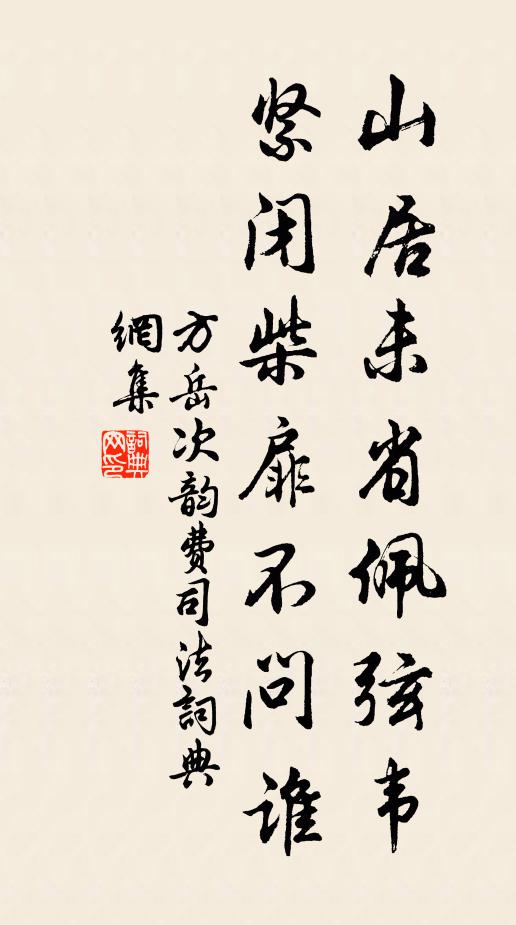 山居未省佩弦韦
紧闭柴扉不问谁
方岳次韵费司法詞典
網集
詞典
网印